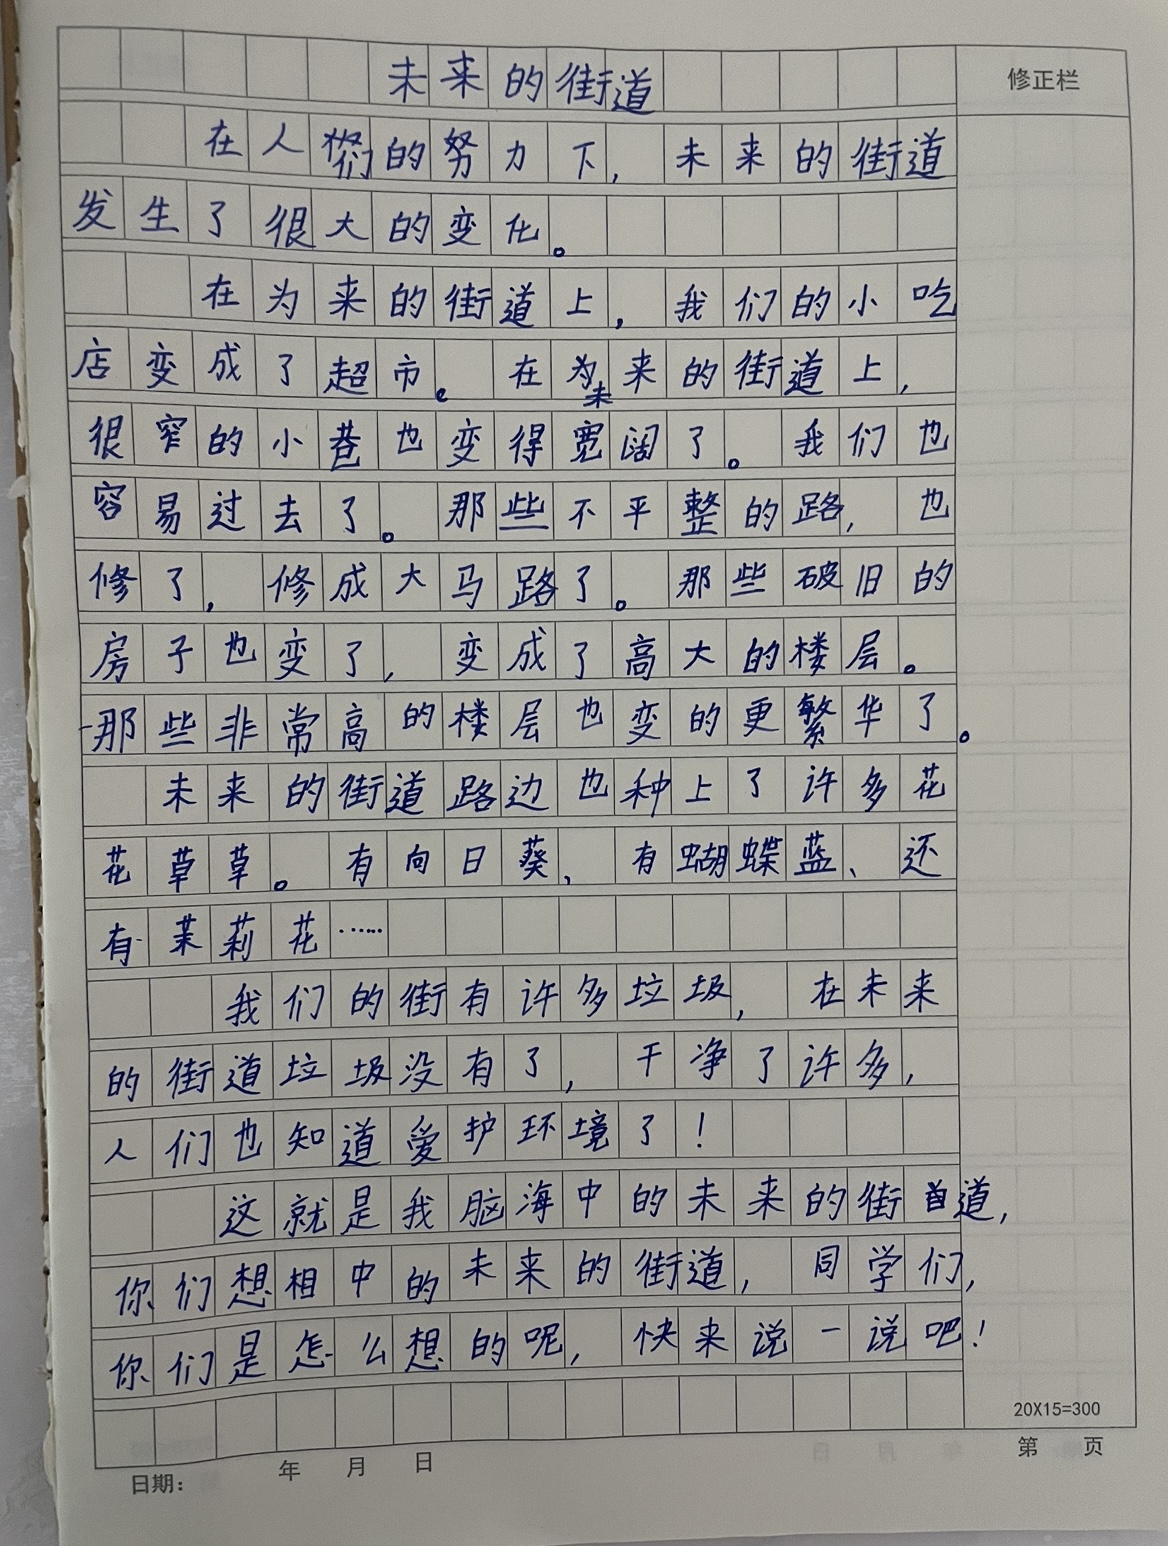 未来的街道
修正栏
在人们的努力下，未来的街道
发生了很大的变化。
在为来的街道上，我们的小吃
店变成了超市。在为来的街道上，
未
很窄的小巷也变得宽阔了。我们也
容易过去了。那些不平整的路，也
修了，修成大马路了。那些破旧的
房子也变了，变成了高大的楼层。
那些非常高的楼层也变的更繁华了。
未来的街道路边也种上了许多花
花草草。有向日葵、有蝴蝶蓝、还
有茉莉花……
我们的街有许多垃圾，在未来
的街道垃圾没有了，干净了许多，
人们也知道爱护环境了！
这就是我脑海中的未来的街道，
你们想相中的未来的街道，同学们，
你们是怎么想的呢，快来说一说吧！
20X15=300
日期： 年 月 日
第 页